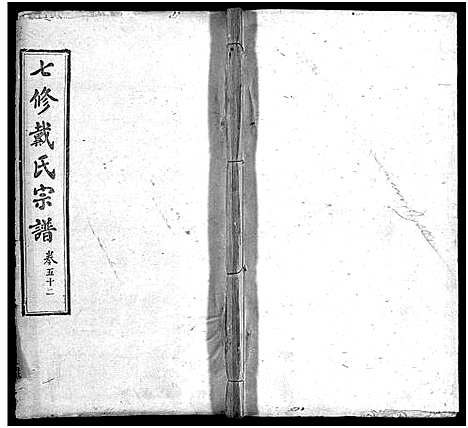 七修戴氏宗譜
卷五十二